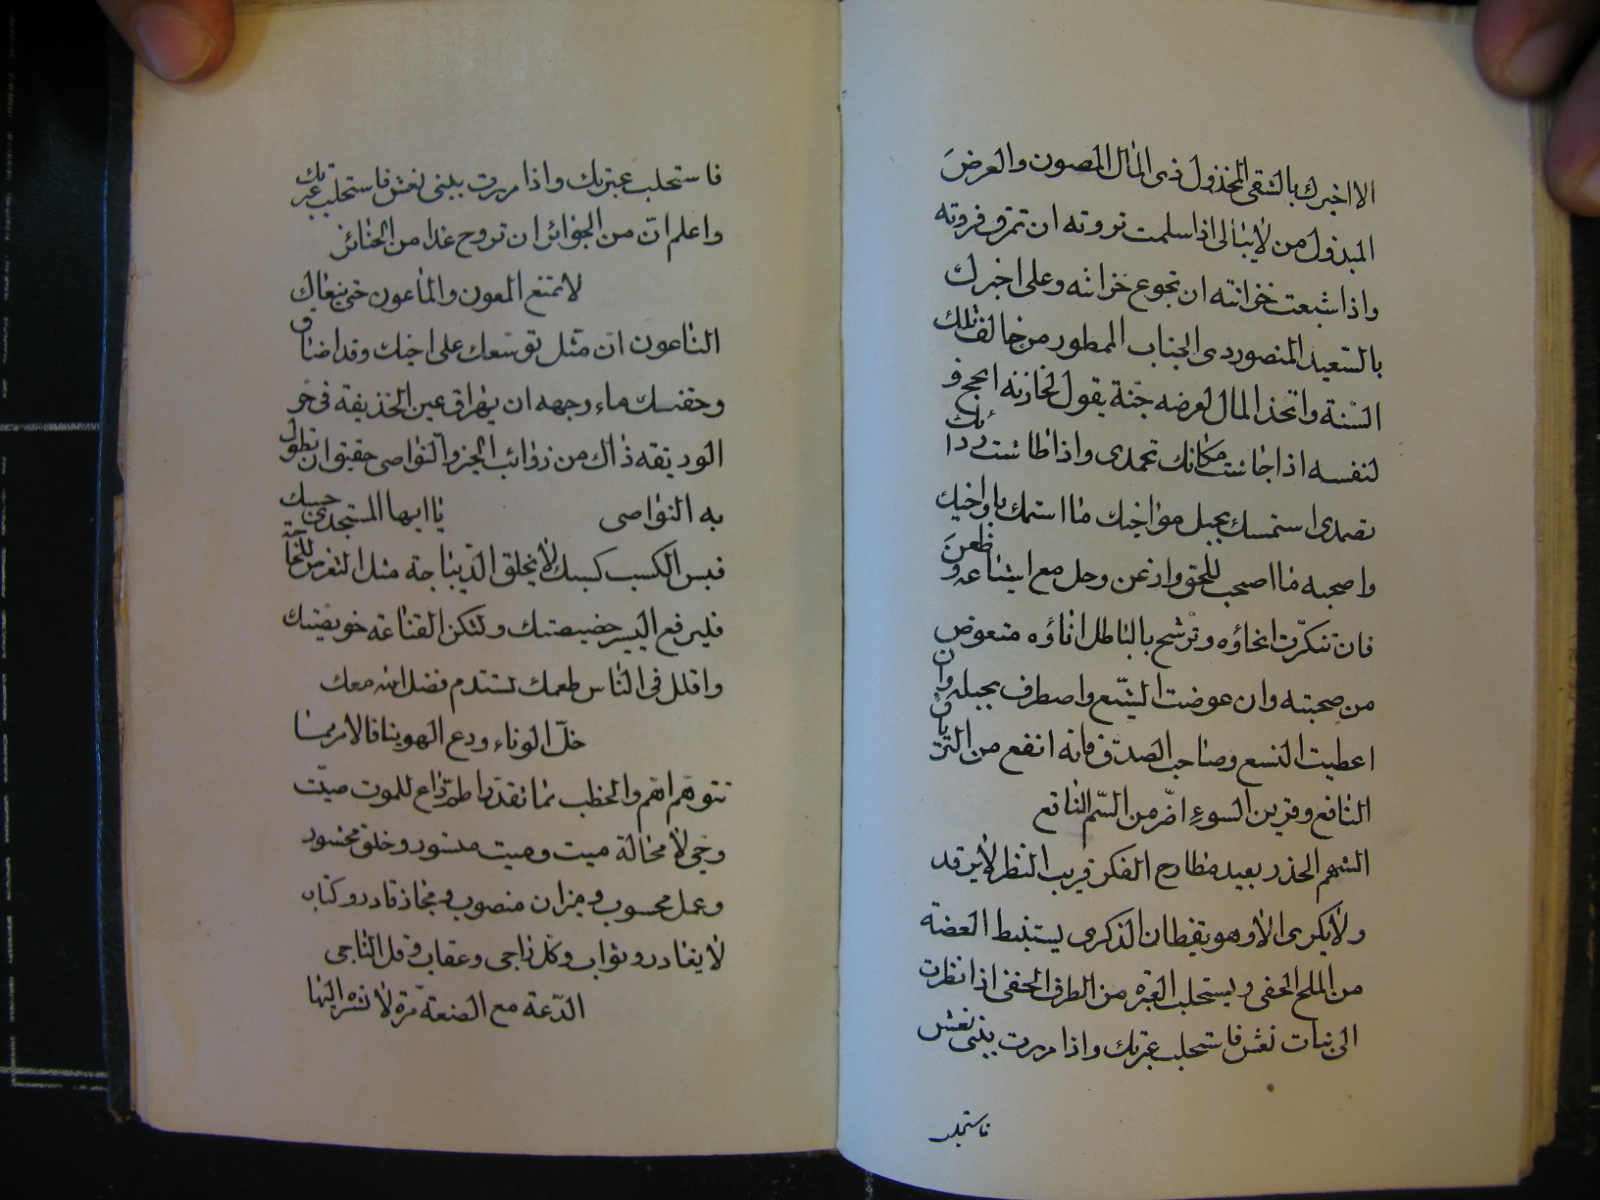 الا اخبرك بالشقى المخذول ذى المال المصون والعرض
المبذول من لا يبالى اذا سلمت ثروته ان تمزق فروته
واذا شبعت خزانته ان تجوع خزانته وعلى اخبرك
بالسعيد المنصور ذى الجناب الممطور من خالف تلك
السنة واتخذ المال لعرضه جنة يقول لخازنه انجح و
لنفسه اذا جاشت مكانك تحمدى واذا طاشت رداءك
تصمدى استمسك بحبل مواخيك ما استمسك باواخيك
واصحبه ما اصحب للحق واذعن وحل مع اشياعه وظعن
فان تنكرت انحاؤه وترشح بالباطل اناؤه فتعوض
من صحبته وان عوضت الشسع واصطرف بحبله وان
اعطيت النسع وصاحب الصدق فانه انفع من الترياق
النافع وقرين السوء اضر من السم الناقع
الشهم الحذر بعيد مطارح الفكر قريب النظر لا يرقد
ولا يكرى الا وهو يقظان الذكرى يستنبط العضة
من الملح الخفى ويستحلب العبرة من الطرف الخفى اذا نظرت
الى بنات نعش فاستحلب عبرتك واذا مررت ببنى نعش
فاستحلب
فاستحلب عبرتك واذا مررت ببنى نعش فاستحلب عبرتك
واعلم ان من الجوائز ان تروح غدا من الجنائز
لا تمنع المعون والماعون حتى ينعاك
الناعون ان مثل توسعك على اخيك وقد اضاق
وحقنك ماء وجهه ان يهراق عين الخذيفة فى حر
الوديقه ذاك من ذوائب الجزو النواصى حقيقوا ان تطول
به النواصى يا ايها المستجدى حسبك
فبئس الكسب كسبك لا يخلق الديباجة مثل التعرض للحاجة
فليرفع اليسير خصيصتك ولتكن القناعة خويصتك
واقلل فى الناس طعمك تستدم فضل الله معك
خل الوناء ودع الهوينا فالامر مما
تتوهم اهم والخطب مما تقدر اطم داع للموت صيت
وحى لا محالة ميت وميت منشور وخلق محشور
وعمل محسوب وميزان منصوب ومجاز قادر وكتاب
لا يغادر وثواب وكل راجى وعقاب وقل الناجى
الدعة مع الضعة مرة لا تشره اليها